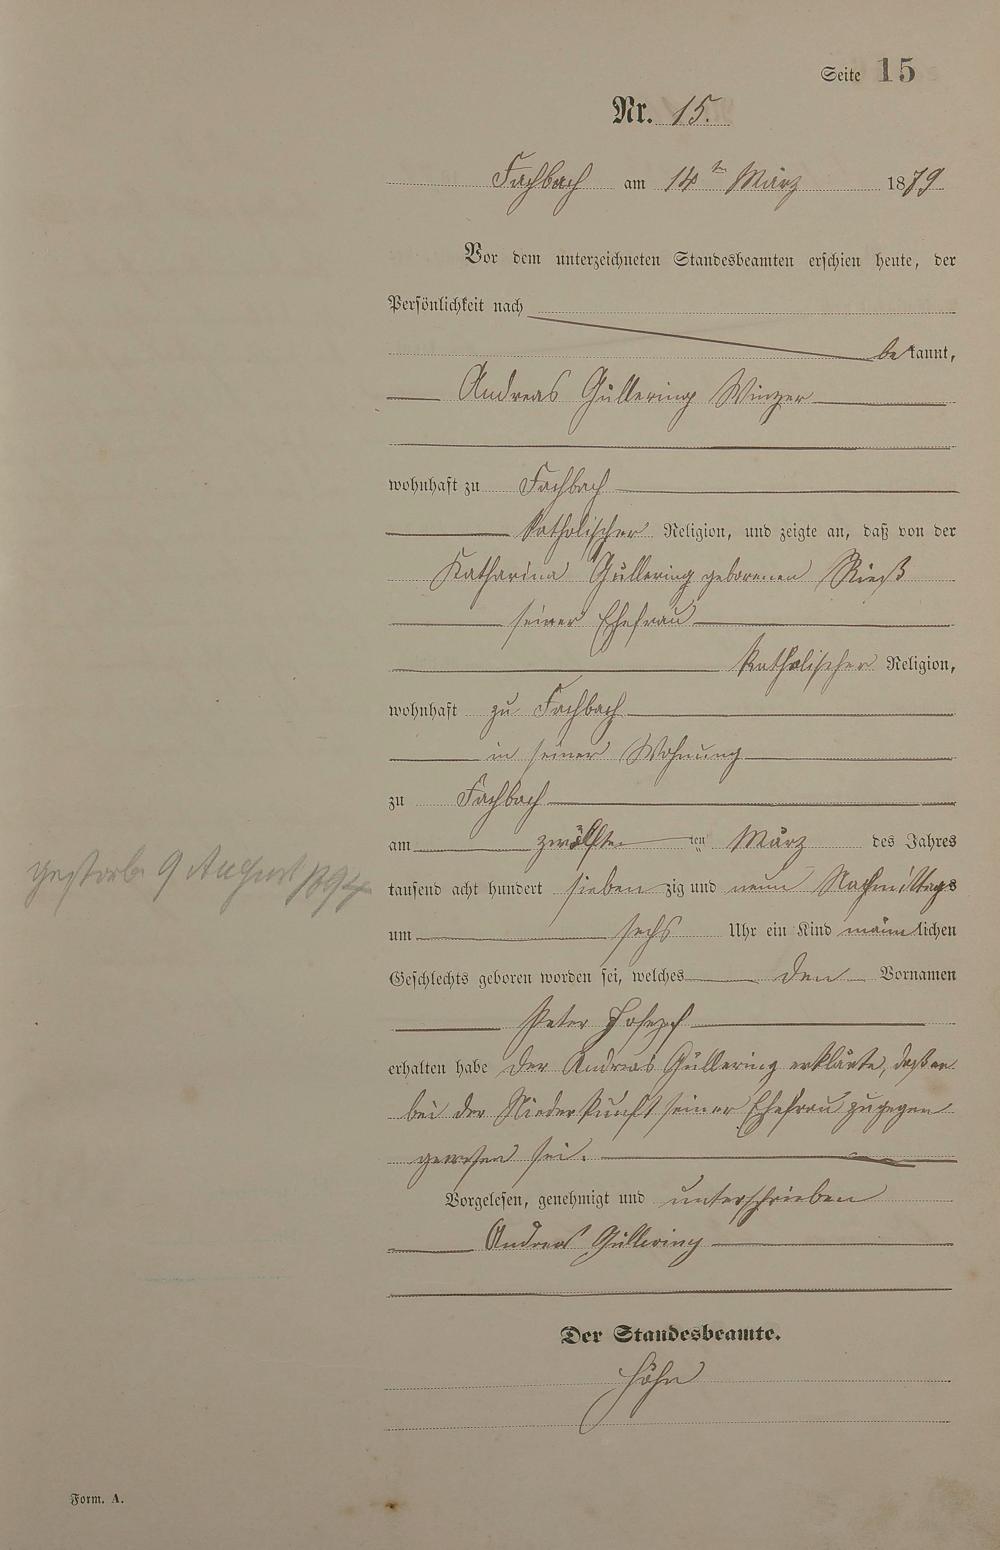 Seite 15
Nr. 15.
Fachbach am 14ten März 1879
Vor dem unterzeichneten Standesbeamten erschien heute, der
Persönlichkeit nach
bekannt,
Andreas Güllering Winzer
wohnhaft zu Fachbach
katholischer Religion, und zeigte an, daß von der
Katharina Güllering geborenen Rieß
seiner Ehefrau
katholischer Religion,
wohnhaft zu Fachbach
in seiner Wohnung
zu Fachbach
am zwölften ten März des Jahres
gestorb. 9 August 1894
tausend acht hundert siebenzig und neun Nachmittags
um sechs Uhr ein Kind männlichen
Geschlechts geboren worden sei, welches den Vornamen
Peter Josepf
erhalten habe Der Andreas Güllering erklärte, daß er
bei der Niederkunft seiner Ehefrau zugegen
gewesen sei.
Vorgelesen, genehmigt und unterschrieben
Andreas Güllering
Der Standesbeamte.
Höhn
Form. A.